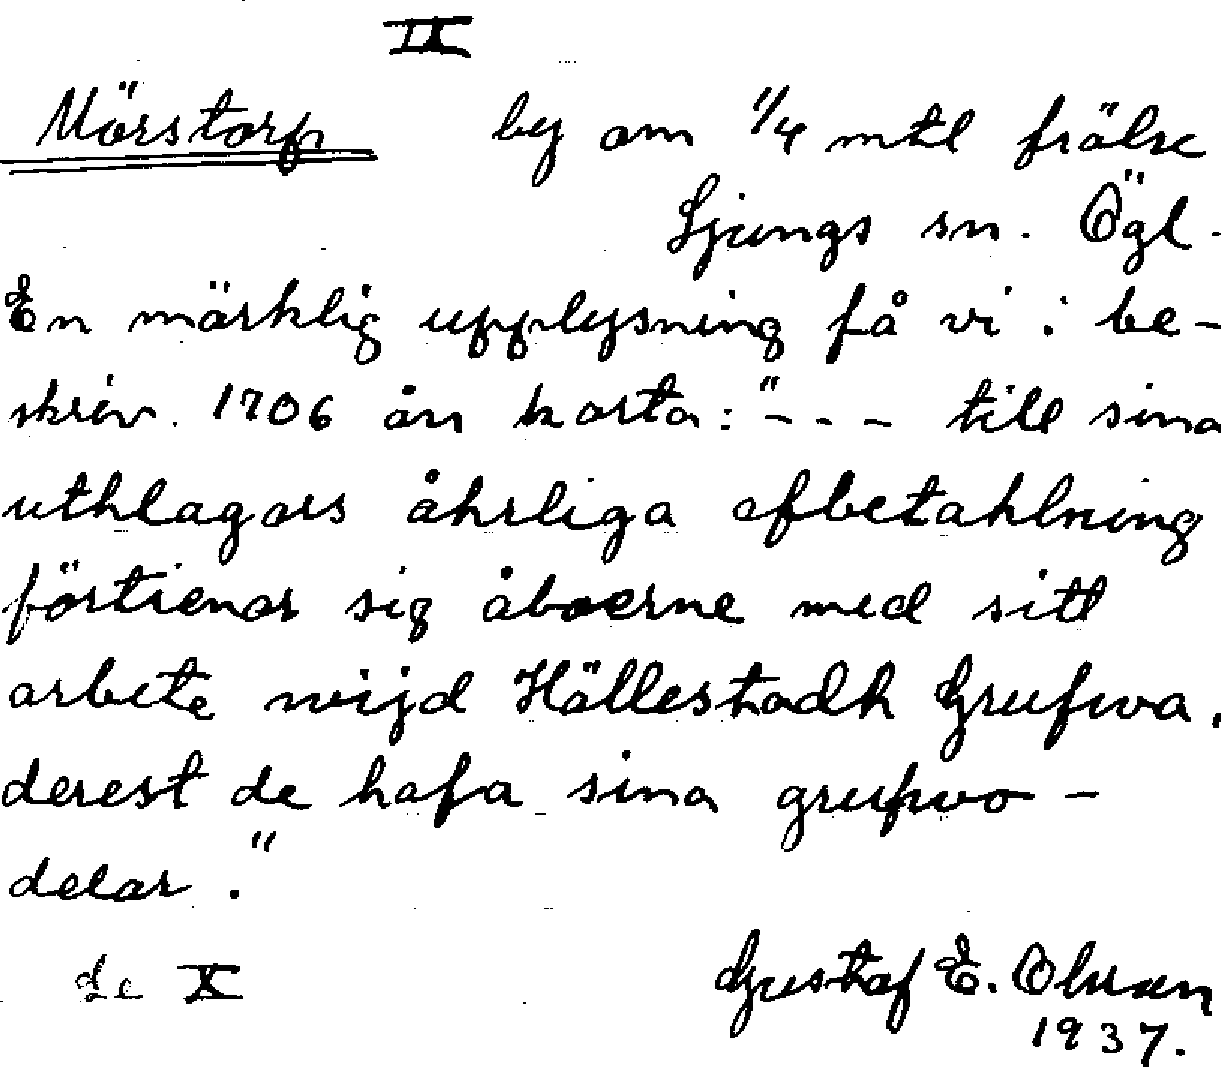 IX
Mörstorp by om 1/4 mtl frälse
Ljungs sn. Ögl.
En märklig upplysning få vi i be-
skriv. 1706 års karta: "- - - till sina
uthlagors åhrliga afbetahlning
förtienar sig åboerne med sitt
arbete wijd Hällestadh Grufwa,
derest de hafa sina grufwo-
delar."
Se X Gustaf E. Olsson
1937.